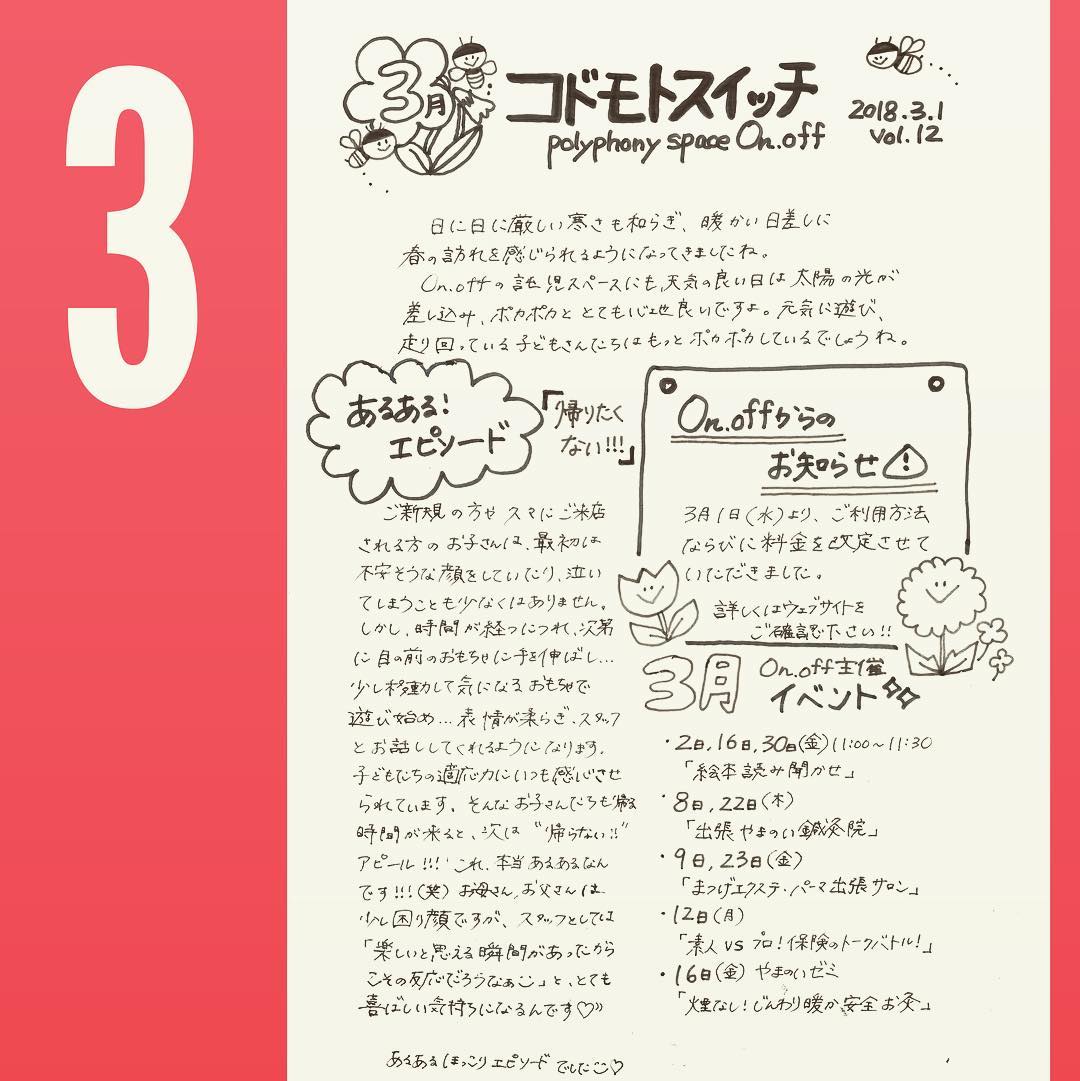 3
3月
コドモトスイッチ
polyphony space On.off
2018.3.1
vol.12
日に日に厳しい寒さも和らぎ、暖かい日差しに
春の訪れを感じられるようになってきましたね。
On.offの託児スペースにも、天気の良い日は太陽の光が
差し込み、ポカポカと とても心地良いですよ。元気に遊び、
走り回っている子どもさんたちはもっとポカポカしているでしょうね。
あるある!
エピソード
「帰りたく
ない!!!」
ご新規の方や スマにご来店
される方の お子さんは、最初は
不安そうな顔をしていたり、泣い
てしまうことも少なくはありません。
しかし、時間が経つにつれ、次第
に目の前のおもちゃに手を伸ばし…
少し移動して気になるおもちゃで
遊び始め…表情が柔らぎ、スタッフ
とお話ししてくれるようになります。
子どもたちの適応力にいつも感じさせ
られています。そんなお子さんたちも帰る
時間が来ると、次は"帰らない!!"
アピール!!! これ、本当あるあるなん
です!!!(笑) お母さん、お父さんは
少し困り顔ですが、スタッフとしては
「楽しいと思える瞬間があったから
こその反応だろうなぁ」と、とても
喜ばしい気持ちになるんです♡
あるあるほっこりエピソード でした♡
On.offからの
お知らせ
3月1日(水)より、ご利用方法
ならびに料金を改定させて
いただきました。
詳しくはウェブサイトを
ご確認下さい!!
3月 On.off主催
イベント
・2日,16日,30日(金)11:00～11:30
「絵本読み聞かせ」
・8日,22日(木)
「出張やまのい鍼灸院」
・9日,23日(金)
「まつげエクステ・パーマ出張サロン」
・12日(月)
「素人 vs プロ!保険のトークバトル!」
・16日(金) やまのいゼミ
「煙なし!じんわり暖か安全お灸」